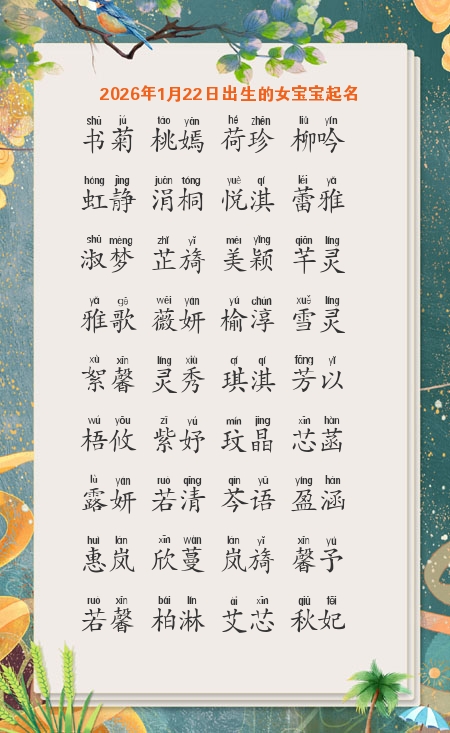 2026年1月22日出生的女宝宝起名
shū jú táo yān hé zhēn liǔ yín
书菊 桃嫣 荷珍 柳吟
hóng jìng juān tóng yuè qí lěi yǎ
虹静 涓桐 悦淇 蕾雅
shū mèng zhǐ yǐ měi yǐng qiān líng
淑梦 芷旖 美颖 芊灵
yǎ gē wēi yán yú chún xuě líng
雅歌 薇妍 榆淳 雪灵
xù xīn líng xiù qí qí fāng yǐ
絮馨 灵秀 琪淇 芳以
wú yōu zǐ yú mín jīng xīn hàn
梧攸 紫妤 玟晶 芯菡
lù yán ruò qīng qín yǔ yíng hán
露妍 若清 芩语 盈涵
huì lán xīn màn lán yǐ xīn yǔ
惠岚 欣蔓 岚旖 馨予
ruò xīn bǎi lín ài xīn qiū fēi
若馨 柏淋 艾芯 秋妃